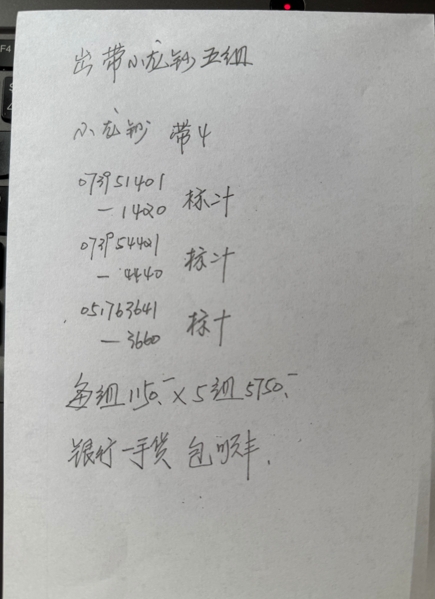 出 带小龙钞五组
小龙钞 带4
073951401
—1420 标二十
073954421
—4440 标二十
051763641
—3660 标十
每组1150.- × 5组 5750.-
银行一手货 包顺丰.